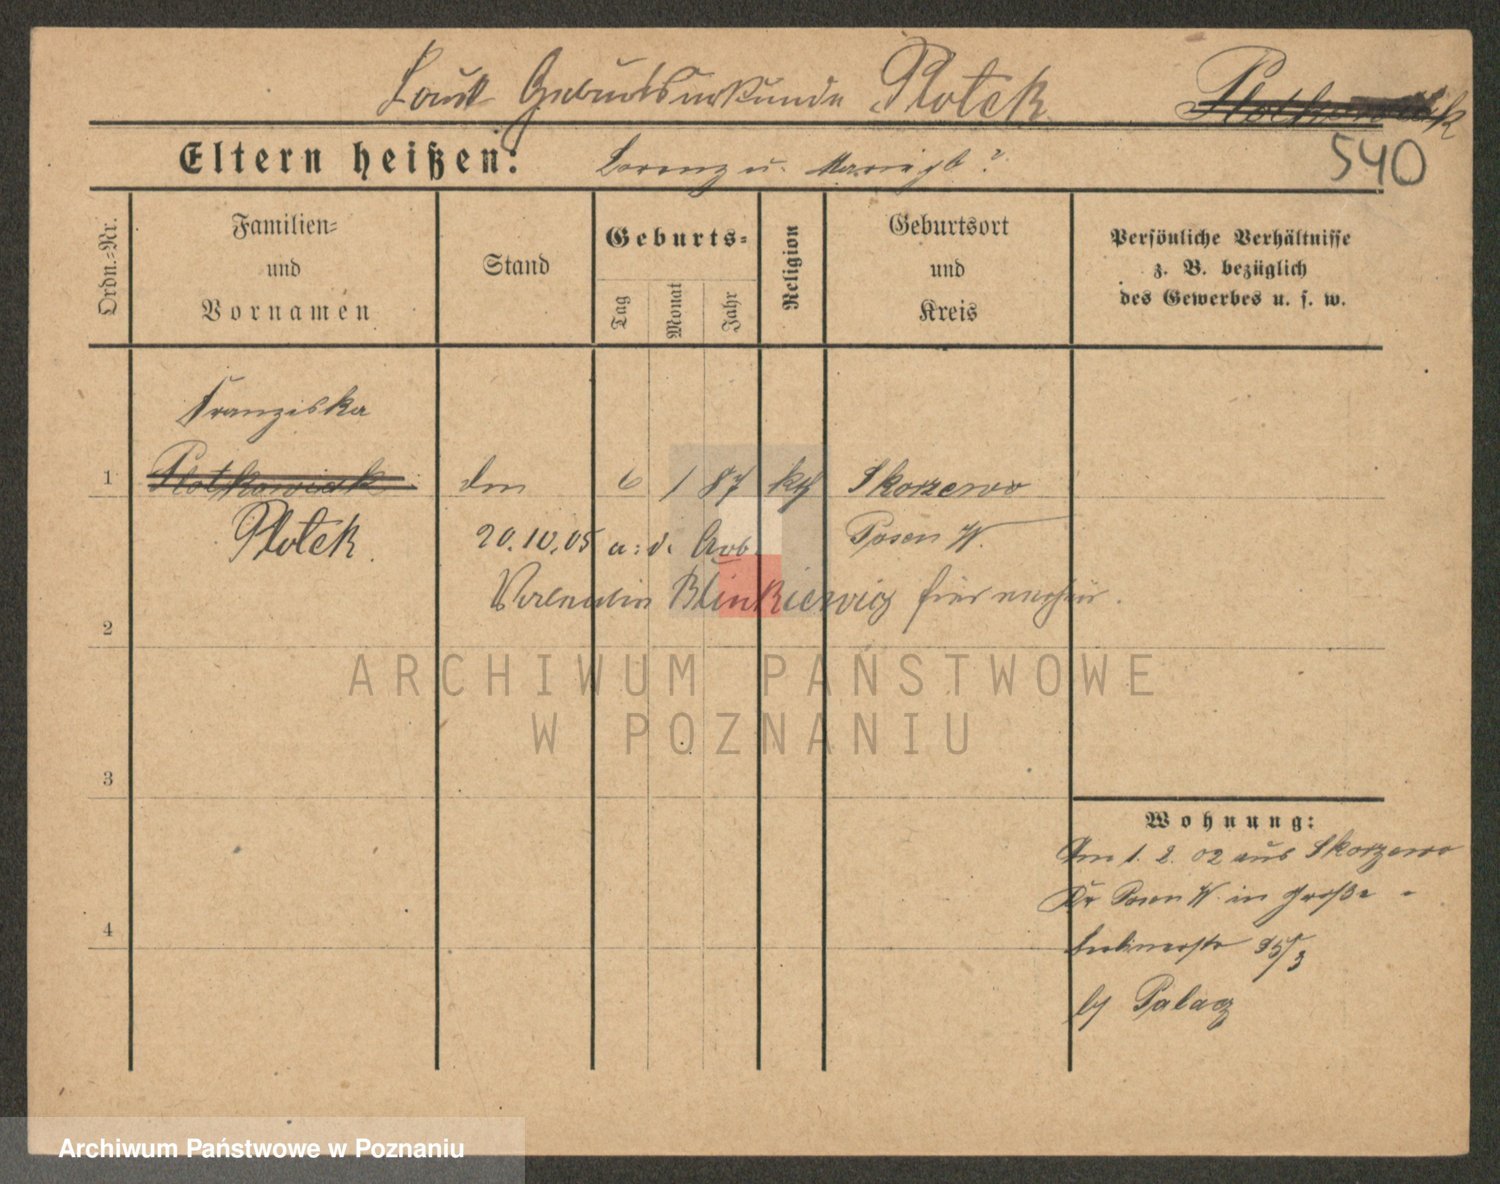 Laut Geburtsurkunde Plotek Plotkowiak
540
Eltern heißen: Lorenz u.
Ordn.=Nr.
Familien=
und
Vornamen
Stand
Geburts=
Tag
Monat
Jahr
Religion
Geburtsort
und
Kreis
Persönliche Verhältnisse
z. B. bezüglich
des Gewerbes u. s. w.
Franziska
1 Plotkowiak 6 1 87 kth Skorzewo
Plotek 20.10.05 a: d. Posen W.
Blinkiewicz
2
3
4
Wohnung:
Am 1. 2. 02 aus Skorzewo
Kr Posen W in Große
Berlinerstr 95/3
by Palacz
ARCHIWUM PAŃSTWOWE
W POZNANIU
Archiwum Państwowe w Poznaniu